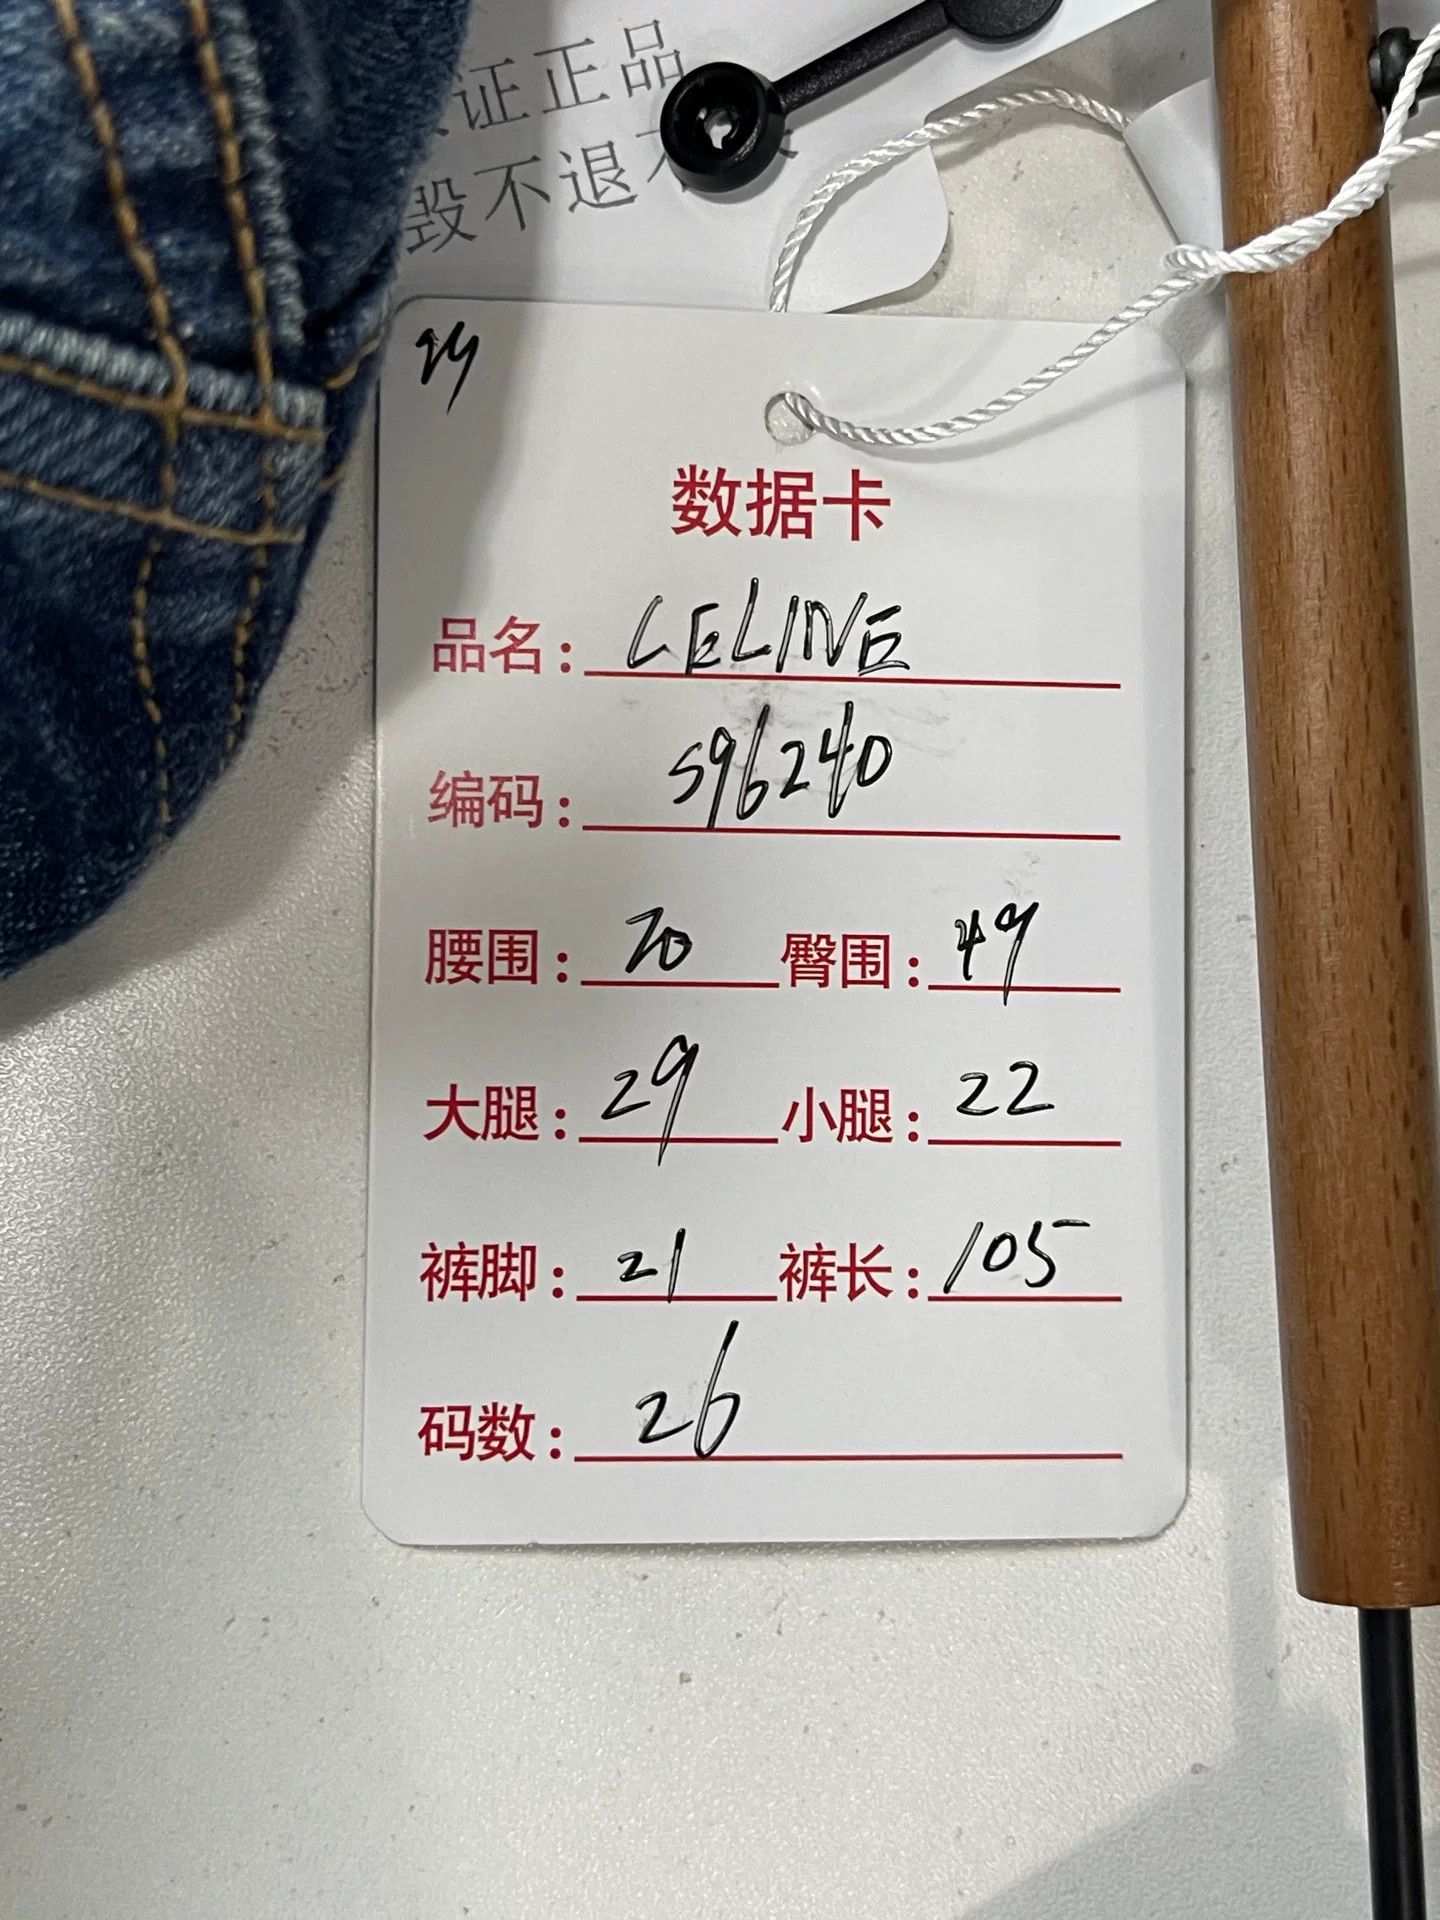 证正品
毁不退不
数据卡
品名: CELINE
编码: 596240
腰围: 70 臀围: 49
大腿: 29 小腿: 22
裤脚: 21 裤长: 105
码数: 26